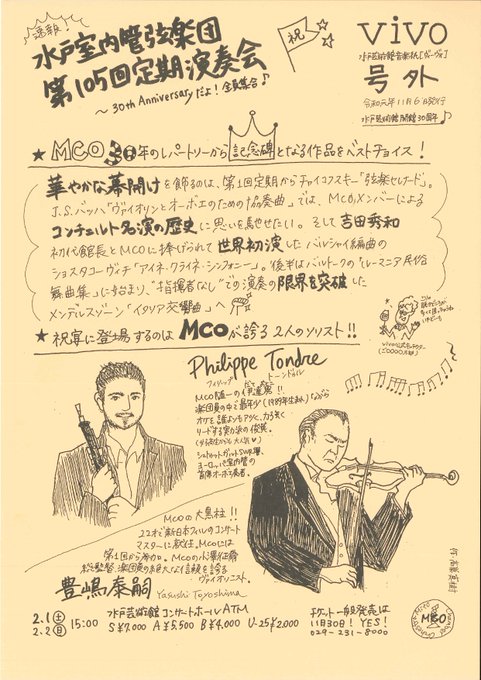 速報!
水戸室内管弦楽団
第105回定期演奏会
~30th Anniversaryだよ!全員集合♪
祝
vivo
水戸芸術館音楽紙[ヴィーヴォ]
号外
令和元年11月6日発行
水戸芸術館開館30周年♪
★MCO30年のレパートリーから記念碑となる作品をベストチョイス!
華やかな幕開けを飾るのは、第1回定期からチャイコフスキー「弦楽セレナード」。
J.S.バッハ「ヴァイオリンとオーボエのための協奏曲」では、MCOメンバーによる
コンチェルト名演の歴史に思いを馳せたい。そして吉田秀和
初代館長とMCOに捧げられて世界初演したバルシャイ編曲の
ショスタコーヴィチ「アイネ・クライネ・シンフォニー」。後半はバルトークの「ルーマニア民俗
舞曲集」に始まり、“指揮者なし”での演奏の限界を突破した
メンデルスゾーン「イタリア交響曲」へ
vivo公式キャラクター
★祝宴に登場するのはMCOが誇る2人のソリスト!!
Philippe Tondre
フィリップ・トーンドゥル
MCO随一の伊達男!!
楽団員の中で最年少(1989年生まれ)ながら
オケを誰よりもアツく、力強く
リードする実力派の俊英。
シュトゥットガルトSWR響、
ヨーロッパ室内管の
首席オーボエ奏者。
MCOの大黒柱!!
22才で新日本フィルのコンサート
マスターに就任。MCOには
第1回から参加。MCOの小澤征爾
総監督、楽団員の絶大な信頼を誇る
ヴァイオリニスト。
豊嶋泰嗣
Yasushi Toyoshima
2.1(土)
2.2(日)
15:00
水戸芸術館コンサートホールATM
S¥7,000 A¥5,500 B¥4,000 U-25¥2,000
チケット一般発売は
11月30日!YES!
029-231-8000
Mito Chamber Orchestra
MCO